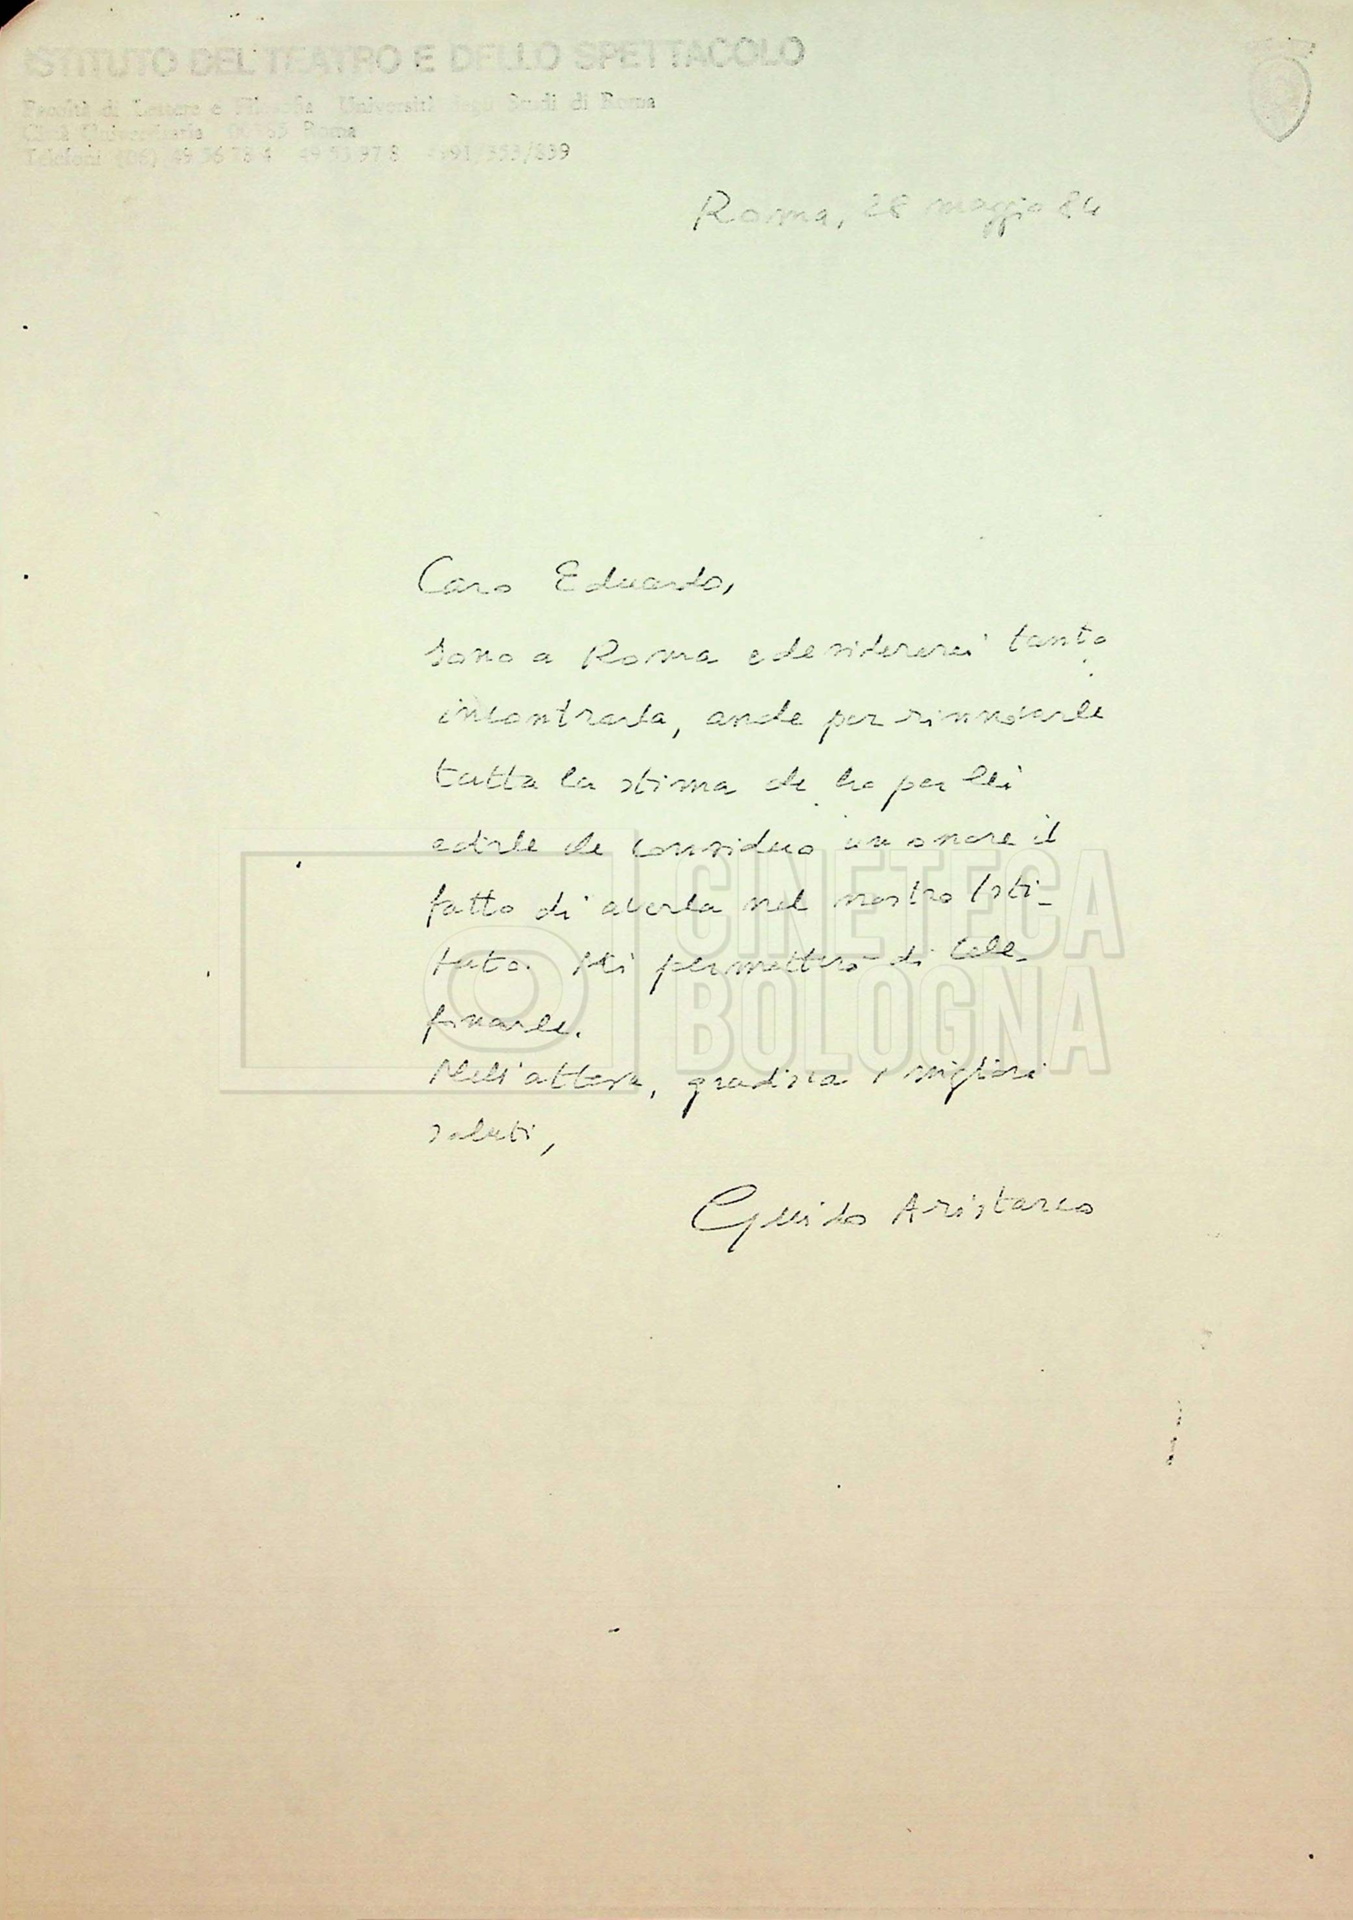 ISTITUTO DEL TEATRO E DELLO SPETTACOLO
Facoltà di Lettere e Filosofia Università degli Studi di Roma
Città Universitaria 00165 Roma
Telefoni (06)
Roma, 28 maggio 84
Caro Eduardo,
sono a Roma e desidererei tanto
incontrarla, anche per rinnovarle
tutta la stima che ho per lei
e dirle che considero un onore il
fatto di averla nel nostro Isti-
tuto. Mi permetterò di tele-
fonarle.
Nell'attesa, gradisca i migliori
saluti,
Guido Aristarco
CINETECA
BOLOGNA